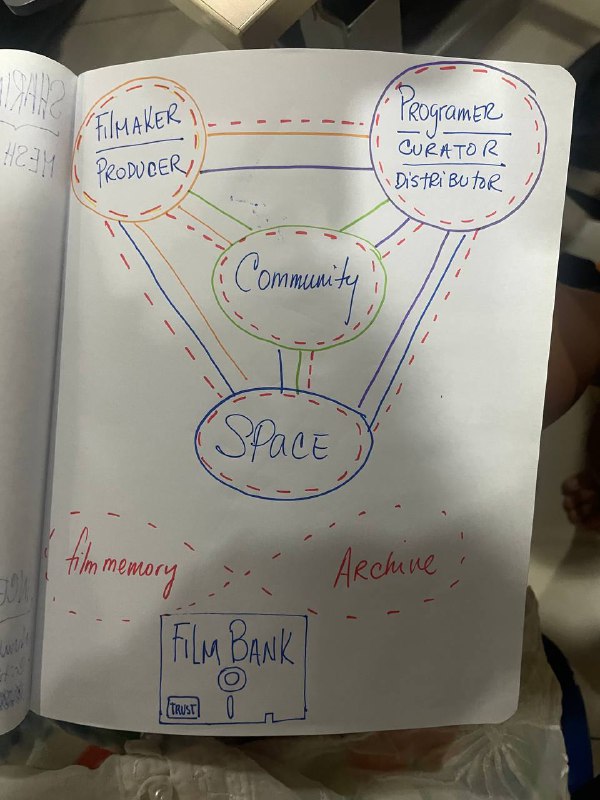 FilMAKER
PRODUCER
PROgRAMER
CURATOR
DistRiButoR
Community
SPACE
film memory
Archive
FiLM BANK
TRUST